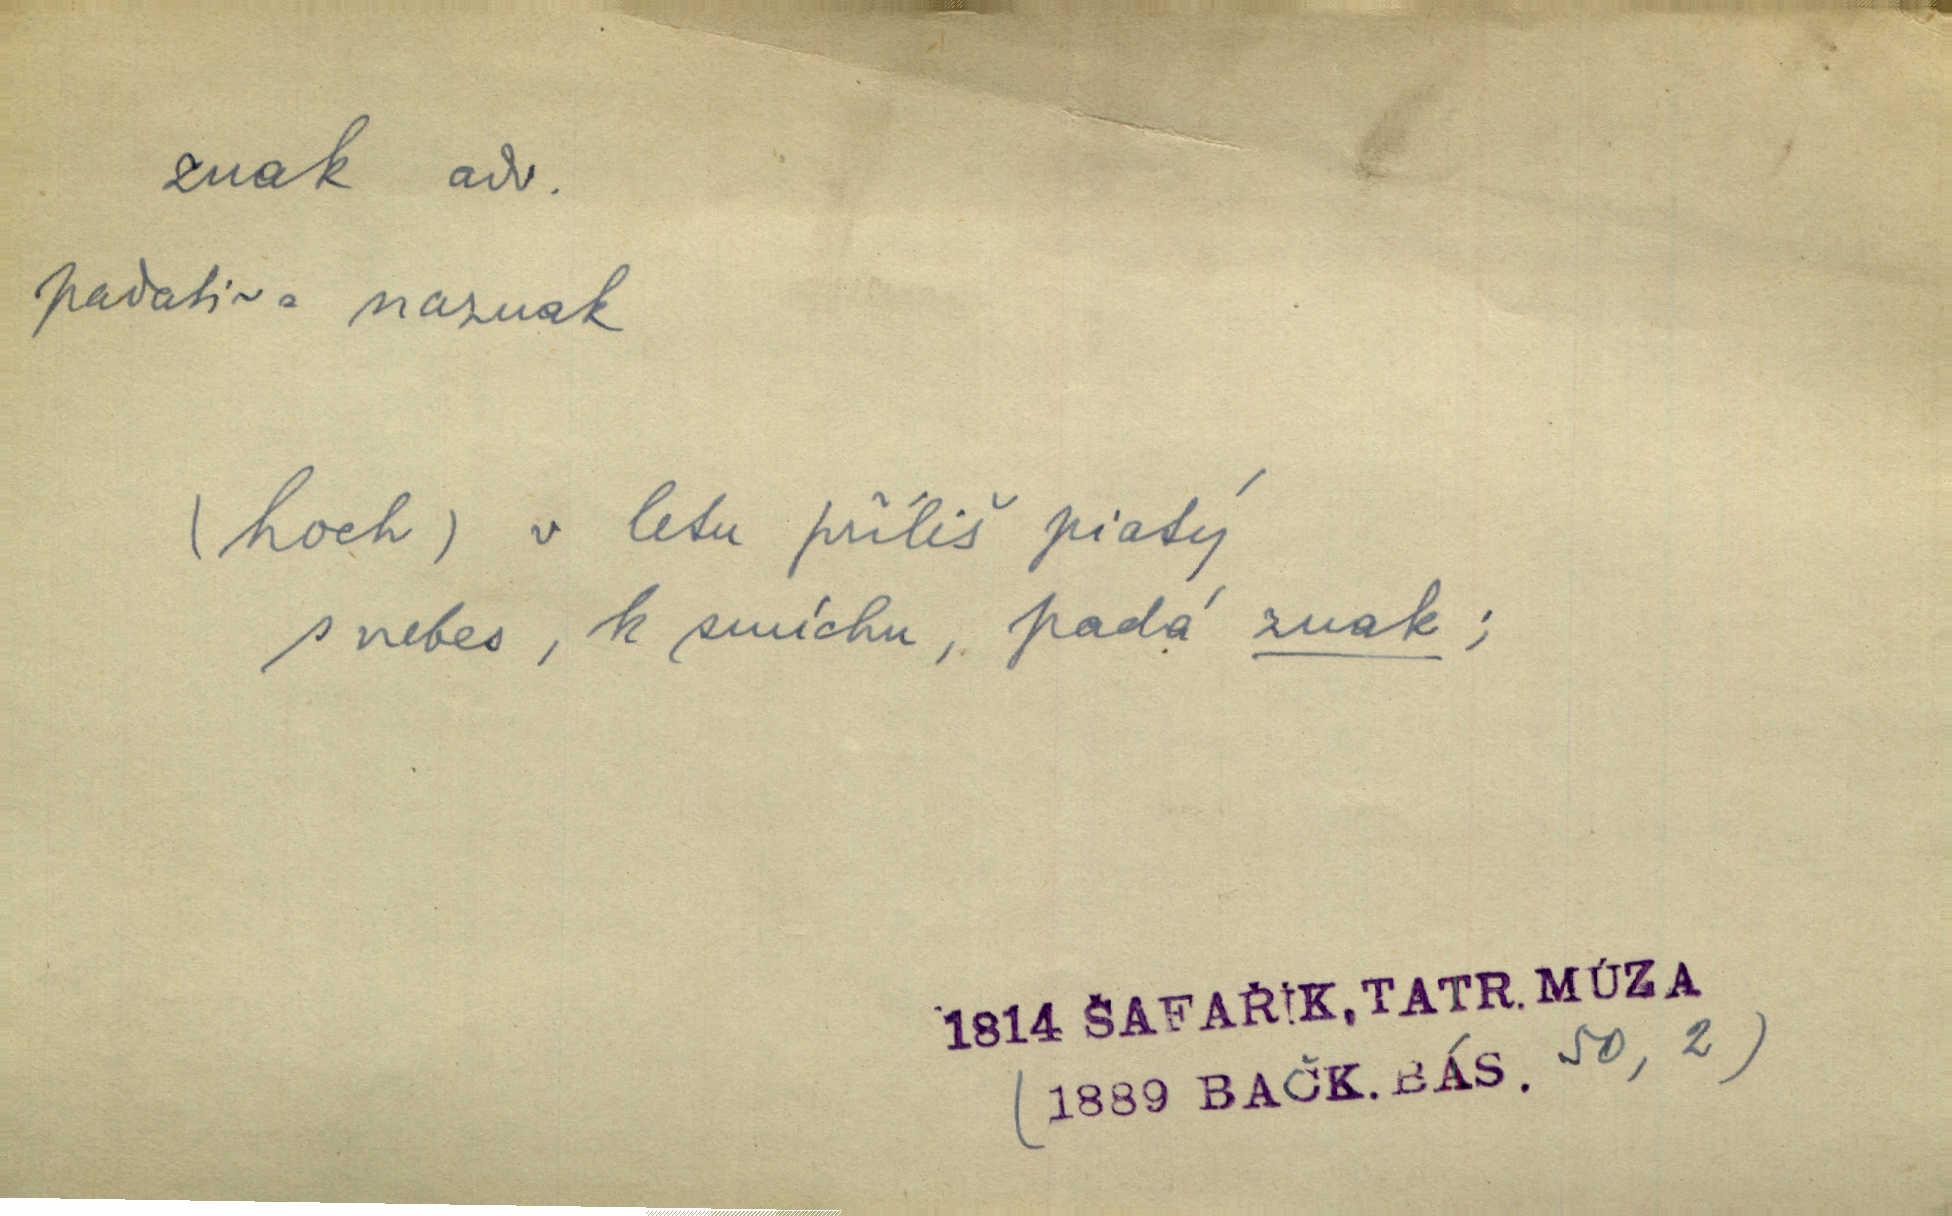 znak adv.
padati naznak
(hoch) v letu příliš piatý
s nebes, k smíchu, padá znak;
1814 ŠAFAŘÍK, TATR. MÚZA
(1889 BAČK. BÁS. 50, 2)